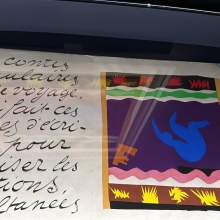 contes
culaires
voyage.
fait ces
s d'écri-
pour
iser les
ions
tanées